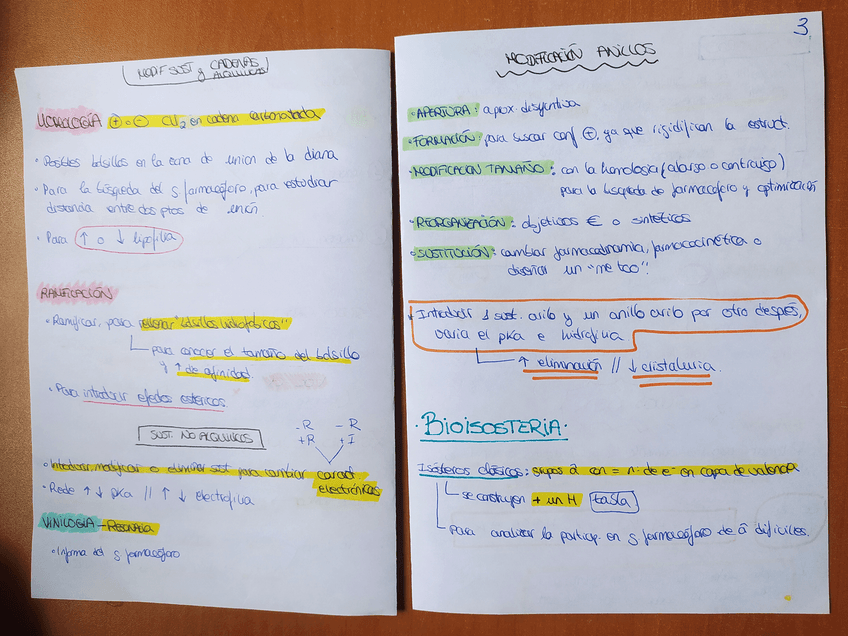 MODIF SUST y CADENAS
ALQUILICAS
HOMOLOGÍA ⊕ o ⊖ CH2 en cadena carbonatada
· Posibles bolsillos en la zona de unión de la diana
· Para la búsqueda del s farmacóforo, para estudiar
distancia entre dos ptos de unión
· Para ↑ o ↓ lipofilia
RAMIFICACIÓN
· Ramificar, para rellenar "bolsillos hidrofóbicos"
para conocer el tamaño del bolsillo
y ↑ de afinidad.
· Para introducir efectos estéricos.
SUST. NO ALQUILICOS
-R -R
+R +I
· Introducir, modificar o eliminar sust para cambiar caract
electrónicas
· Puede ↑ ↓ pka // ↑ ↓ electrofilia
VINILOGÍA - Resonancia
· Informa del s farmacóforo
3
MODIFICACIÓN ANILLOS
· APERTURA: aprox. disyuntiva
· FORMACIÓN: para buscar conf ⊕, ya que rigidifican la estruct.
· MODIFICACION TAMAÑO: con la homología (alargo o contraigo)
para la búsqueda de farmacóforo y optimización
· REORGANIZACIÓN: objetivos € o sintéticos
· SUSTITUCIÓN: cambiar farmacodinamia, farmacocinética o
diseñar un "me too".
· Introducir 1 sust. arilo y un anillo arilo por otro después,
varia el pka e hidrofilia
↑ eliminación // ↓ cristaluria.
· BIOISOSTERIA.
Isósteros clásicos: grupos à con = nº de e- en capa de valencia
se construyen + un H tabla
Para analizar la particip. en s farmacóforo de à difíciles.